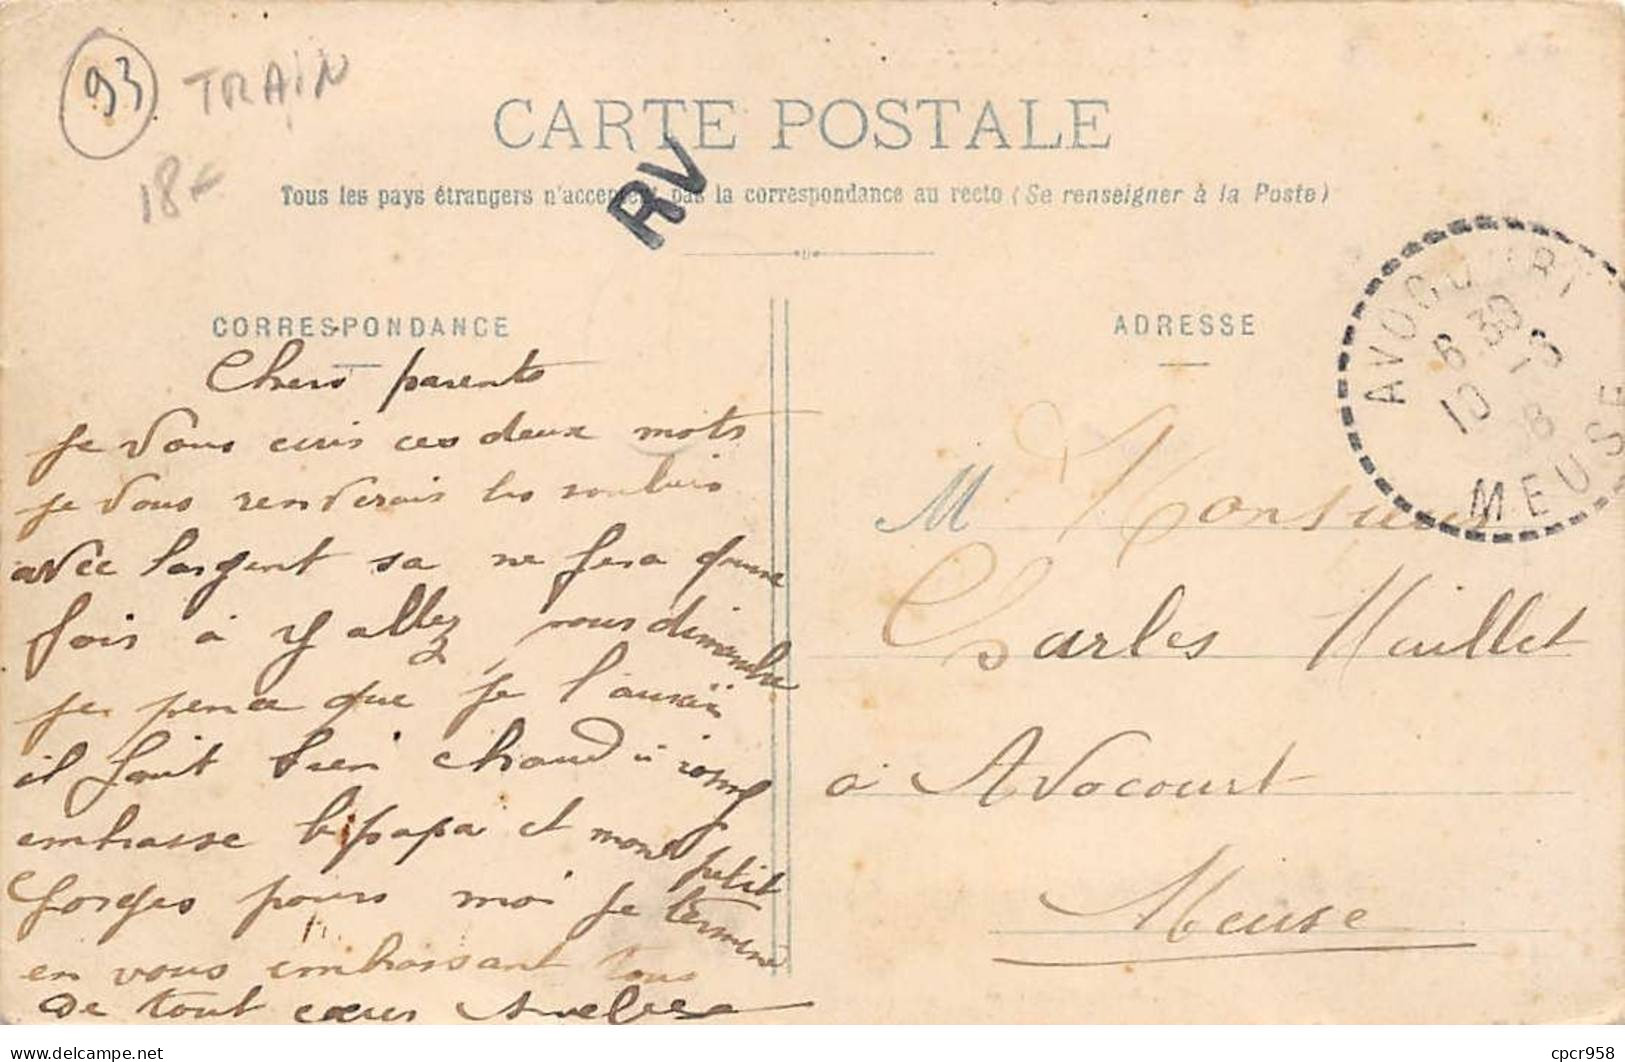 93 TRAIN
18F
CARTE POSTALE
RV
Tous les pays étrangers n'acceptent pas la correspondance au recto (Se renseigner à la Poste)
CORRESPONDANCE
Chers parents
je vous ecris ces deux mots
je vous renverais les souliers
avec l'argent sa ne fera qu'une
fois à y allez vous dimanche
je pence que je l'aurais
il fait bien chaud à
embrasse le papa et mon petit
Gorges pours moi je termine
en vous embrassant tous
de tout cœurs
ADRESSE
AVOCOURT
6 30
10
MEUSE
M Monsieur
Charles Maillet
à Avocourt
Meuse
cpcr958